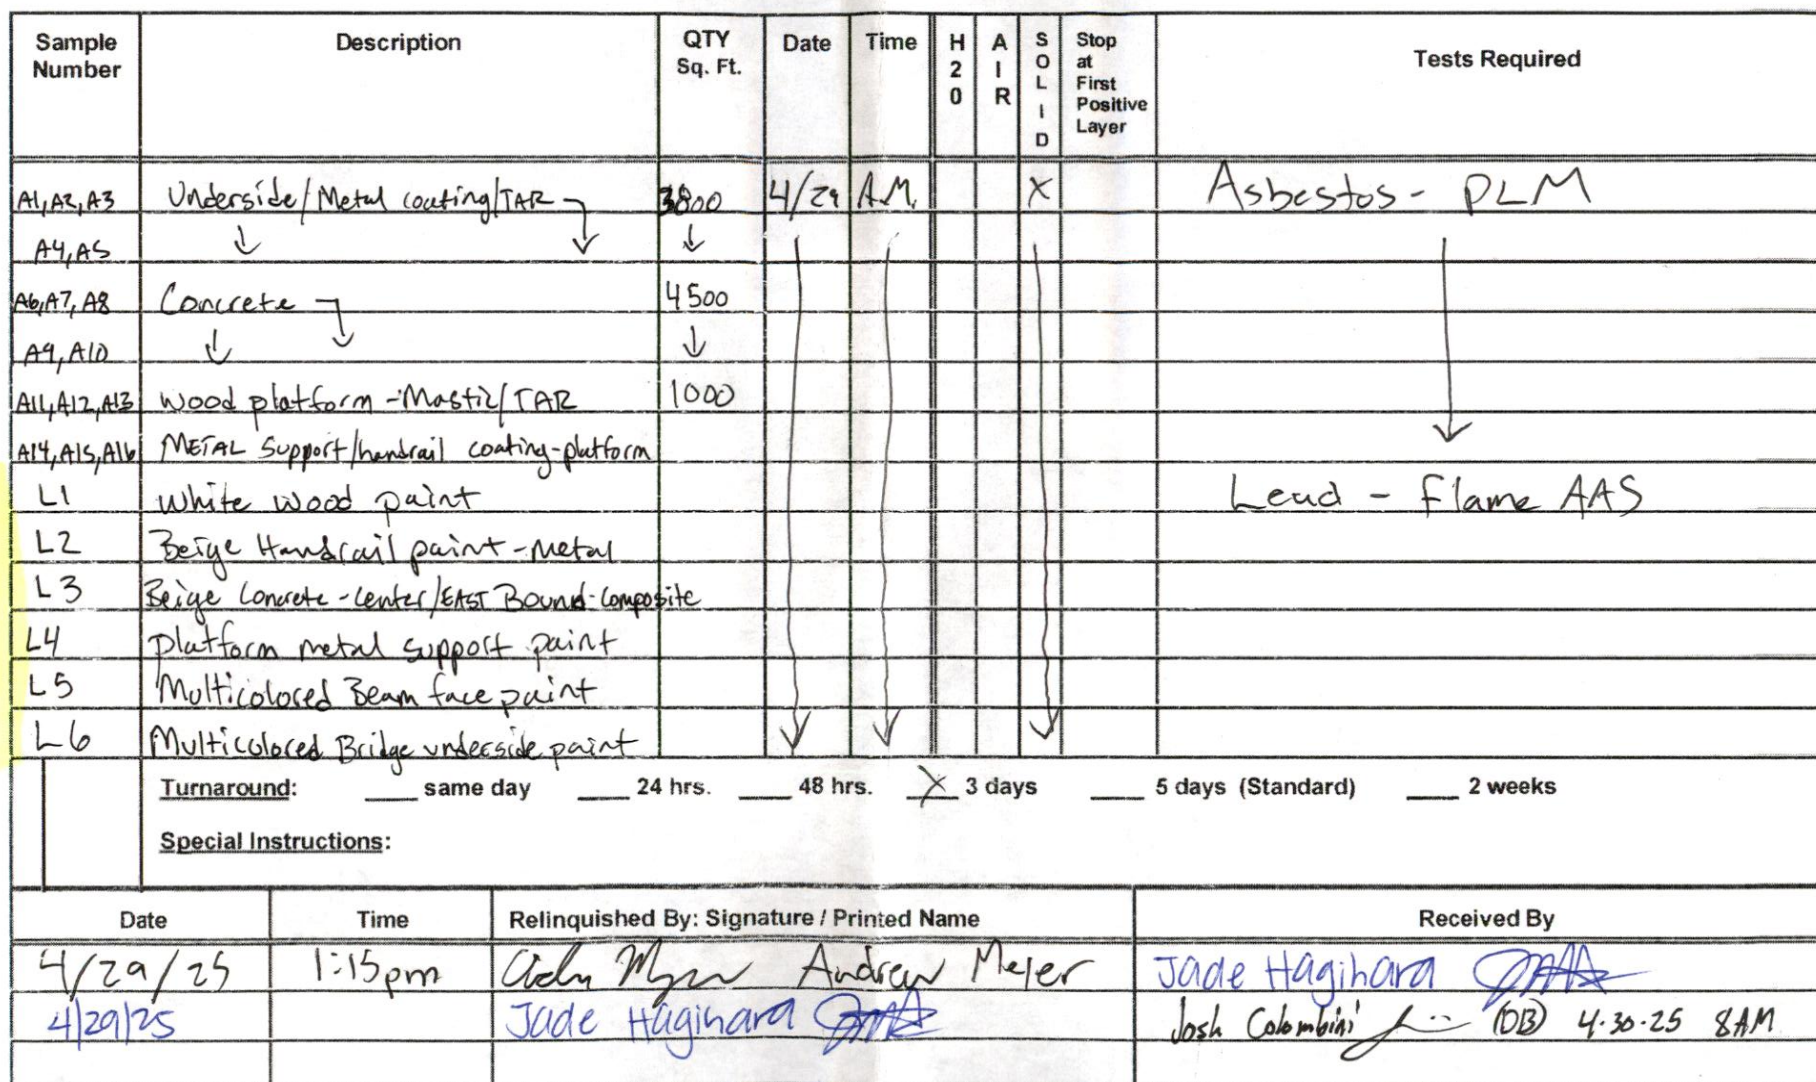 Sample Number Description QTY Sq. Ft. Date Time H20 AIR SOLID Stop at First Positive Layer Tests Required
A1, A2, A3 Underside/Metal coating/TAR 3800 4/29 A.M. X Asbestos - PLM
A4, A5 ↓ ↓ ↓
A6, A7, A8 Concrete 4500
A9, A10 ↓ ↓ ↓
A11, A12, A13 Wood platform - Mastic/TAR 1000
A14, A15, A16 METAL Support/handrail coating-platform
L1 White wood paint Lead - Flame AAS
L2 Beige Handrail paint - metal
L3 Beige Concrete - center/EAST Bound - composite
L4 Platform metal support paint
L5 Multicolored Beam face paint
L6 Multicolored Bridge underside paint
Turnaround: ___ same day ___ 24 hrs. ___ 48 hrs. X 3 days ___ 5 days (Standard) ___ 2 weeks
Special Instructions:
Date Time Relinquished By: Signature / Printed Name Received By
4/29/25 1:15pm Andrew Meyer Jade Hagihara
4/29/25 Jade Hagihara Josh Colombini (DB) 4-30-25 8AM